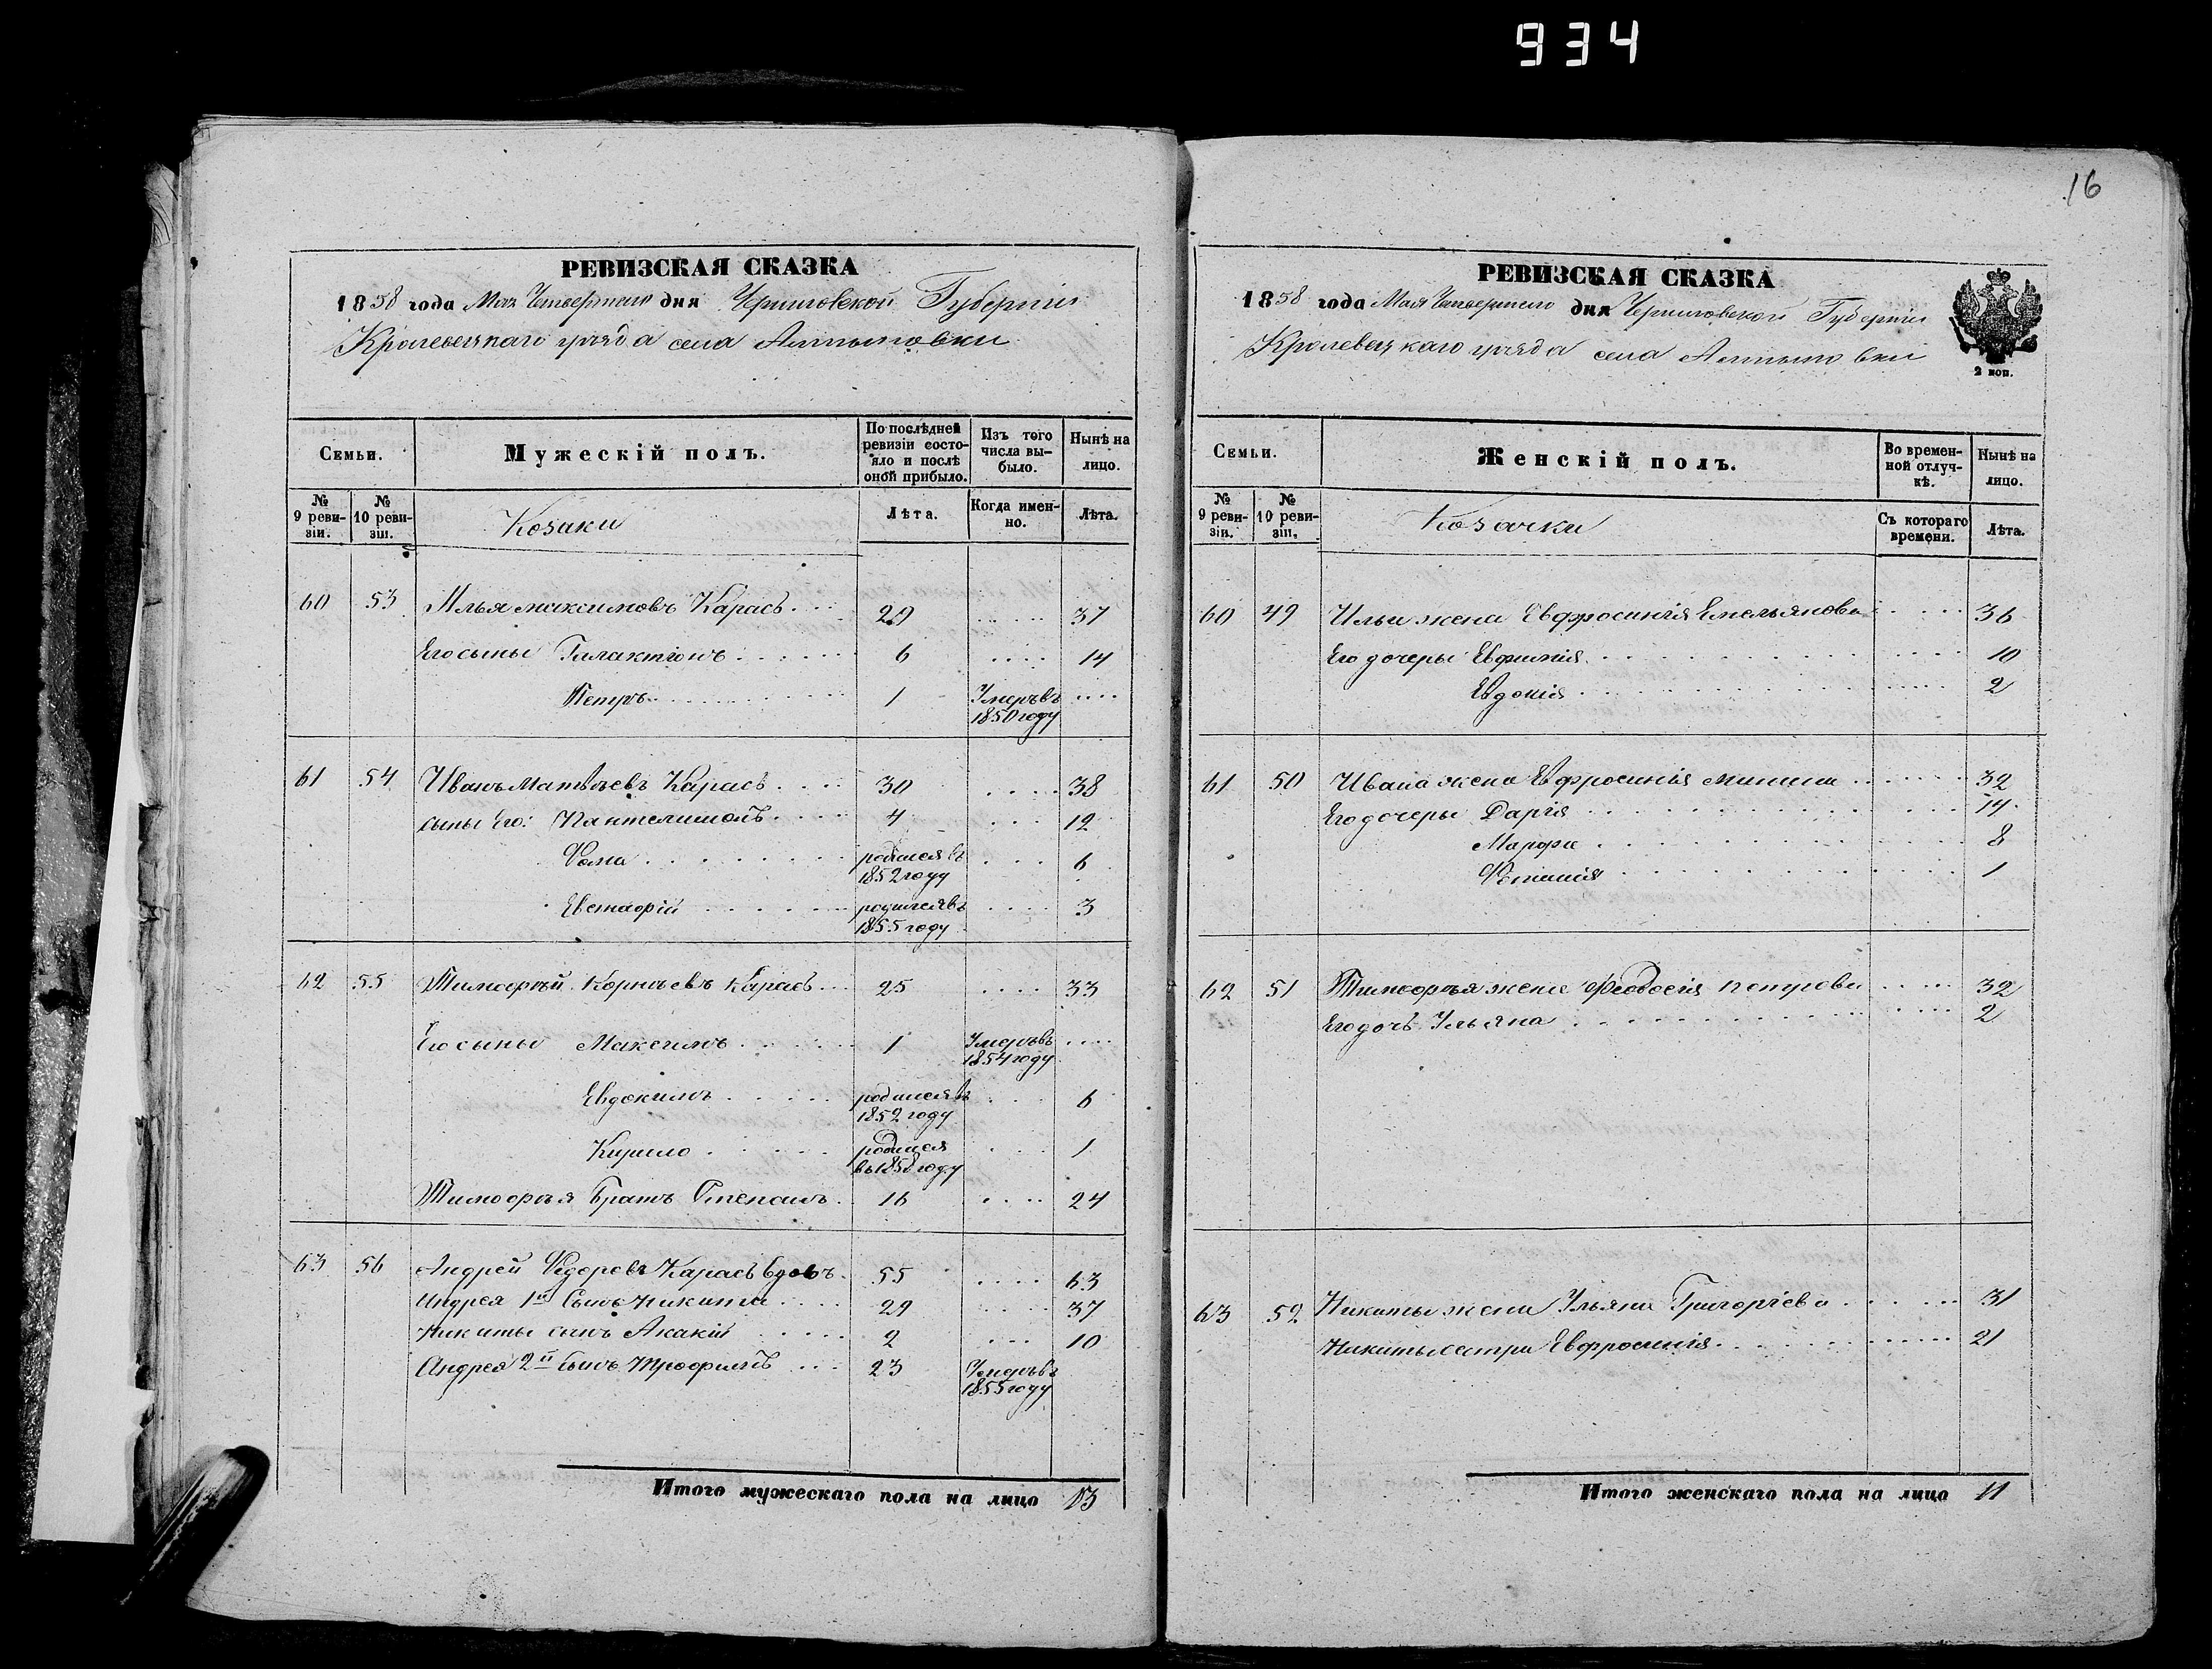 934
РЕВИЗСКАЯ СКАЗКА
1858 года Мая Четвертаго дня Черниговской Губерніи
Кролевецкаго уѣзда села Алтыновки
Семьи.
Мужескій полъ.
По послѣдней ревизіи состояло и послѣ оной прибыло.
Изъ того числа выбыло.
Нынѣ на лицо.
№ 9 ревизіи.
№ 10 ревизіи.
Козаки
Лѣта.
Когда именно.
Лѣта.
60 53 Илья максимовъ Карась 29 37
Его сыны Галактіонъ 6 14
Петръ 1 Умеръ въ 1850 году
61 54 Иванъ Матвѣевъ Карась 30 38
сыны Его: Пантелимонъ 4 12
Фома родился въ 1852 году 6
Евстафій родился въ 1855 году 3
62 55 Тимофѣй Корнѣевъ Карась 25 33
Его сыны Максимъ 1 Умеръ въ 1854 году
Евдокимъ родился въ 1852 году 6
Кирило родился въ 1858 году 1
Тимофѣя Братъ Степанъ 16 24
63 56 Андрей Федоровъ Карась вдовъ 55 63
Андрея 1й Сынъ Никита 29 37
Никиты сынъ Акакій 2 10
Андрея 2й сынъ Трофимъ 23 Умеръ въ 1855 году
Итого мужескаго пола на лицо 13
16
РЕВИЗСКАЯ СКАЗКА
1858 года Мая Четвертаго дня Черниговской Губерніи
Кролевецкаго уѣзда села Алтыновки
2 коп.
Семьи.
Женскій полъ.
Во временной отлучкѣ.
Нынѣ на лицо.
№ 9 ревизіи.
№ 10 ревизіи.
Козачки
Съ котораго времени.
Лѣта.
60 49 Ильи жена Евфросинія Емельянова 36
Его дочеры Евфимія 10
Евдокія 2
61 50 Ивана жена Евфросинія минина 32
Его дочеры Дарія 14
Марфа 8
Фотинія 1
62 51 Тимофѣя жена Феодосія петрова 32
Его дочь Ульяна 2
63 52 Никиты жена Ульяна Григоріева 31
Никиты сестра Евфросинія 21
Итого женскаго пола на лицо 11